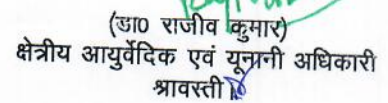 (डा0 राजीव कुमार)
क्षेत्रीय आयुर्वेदिक एवं यूनानी अधिकारी
श्रावस्ती।